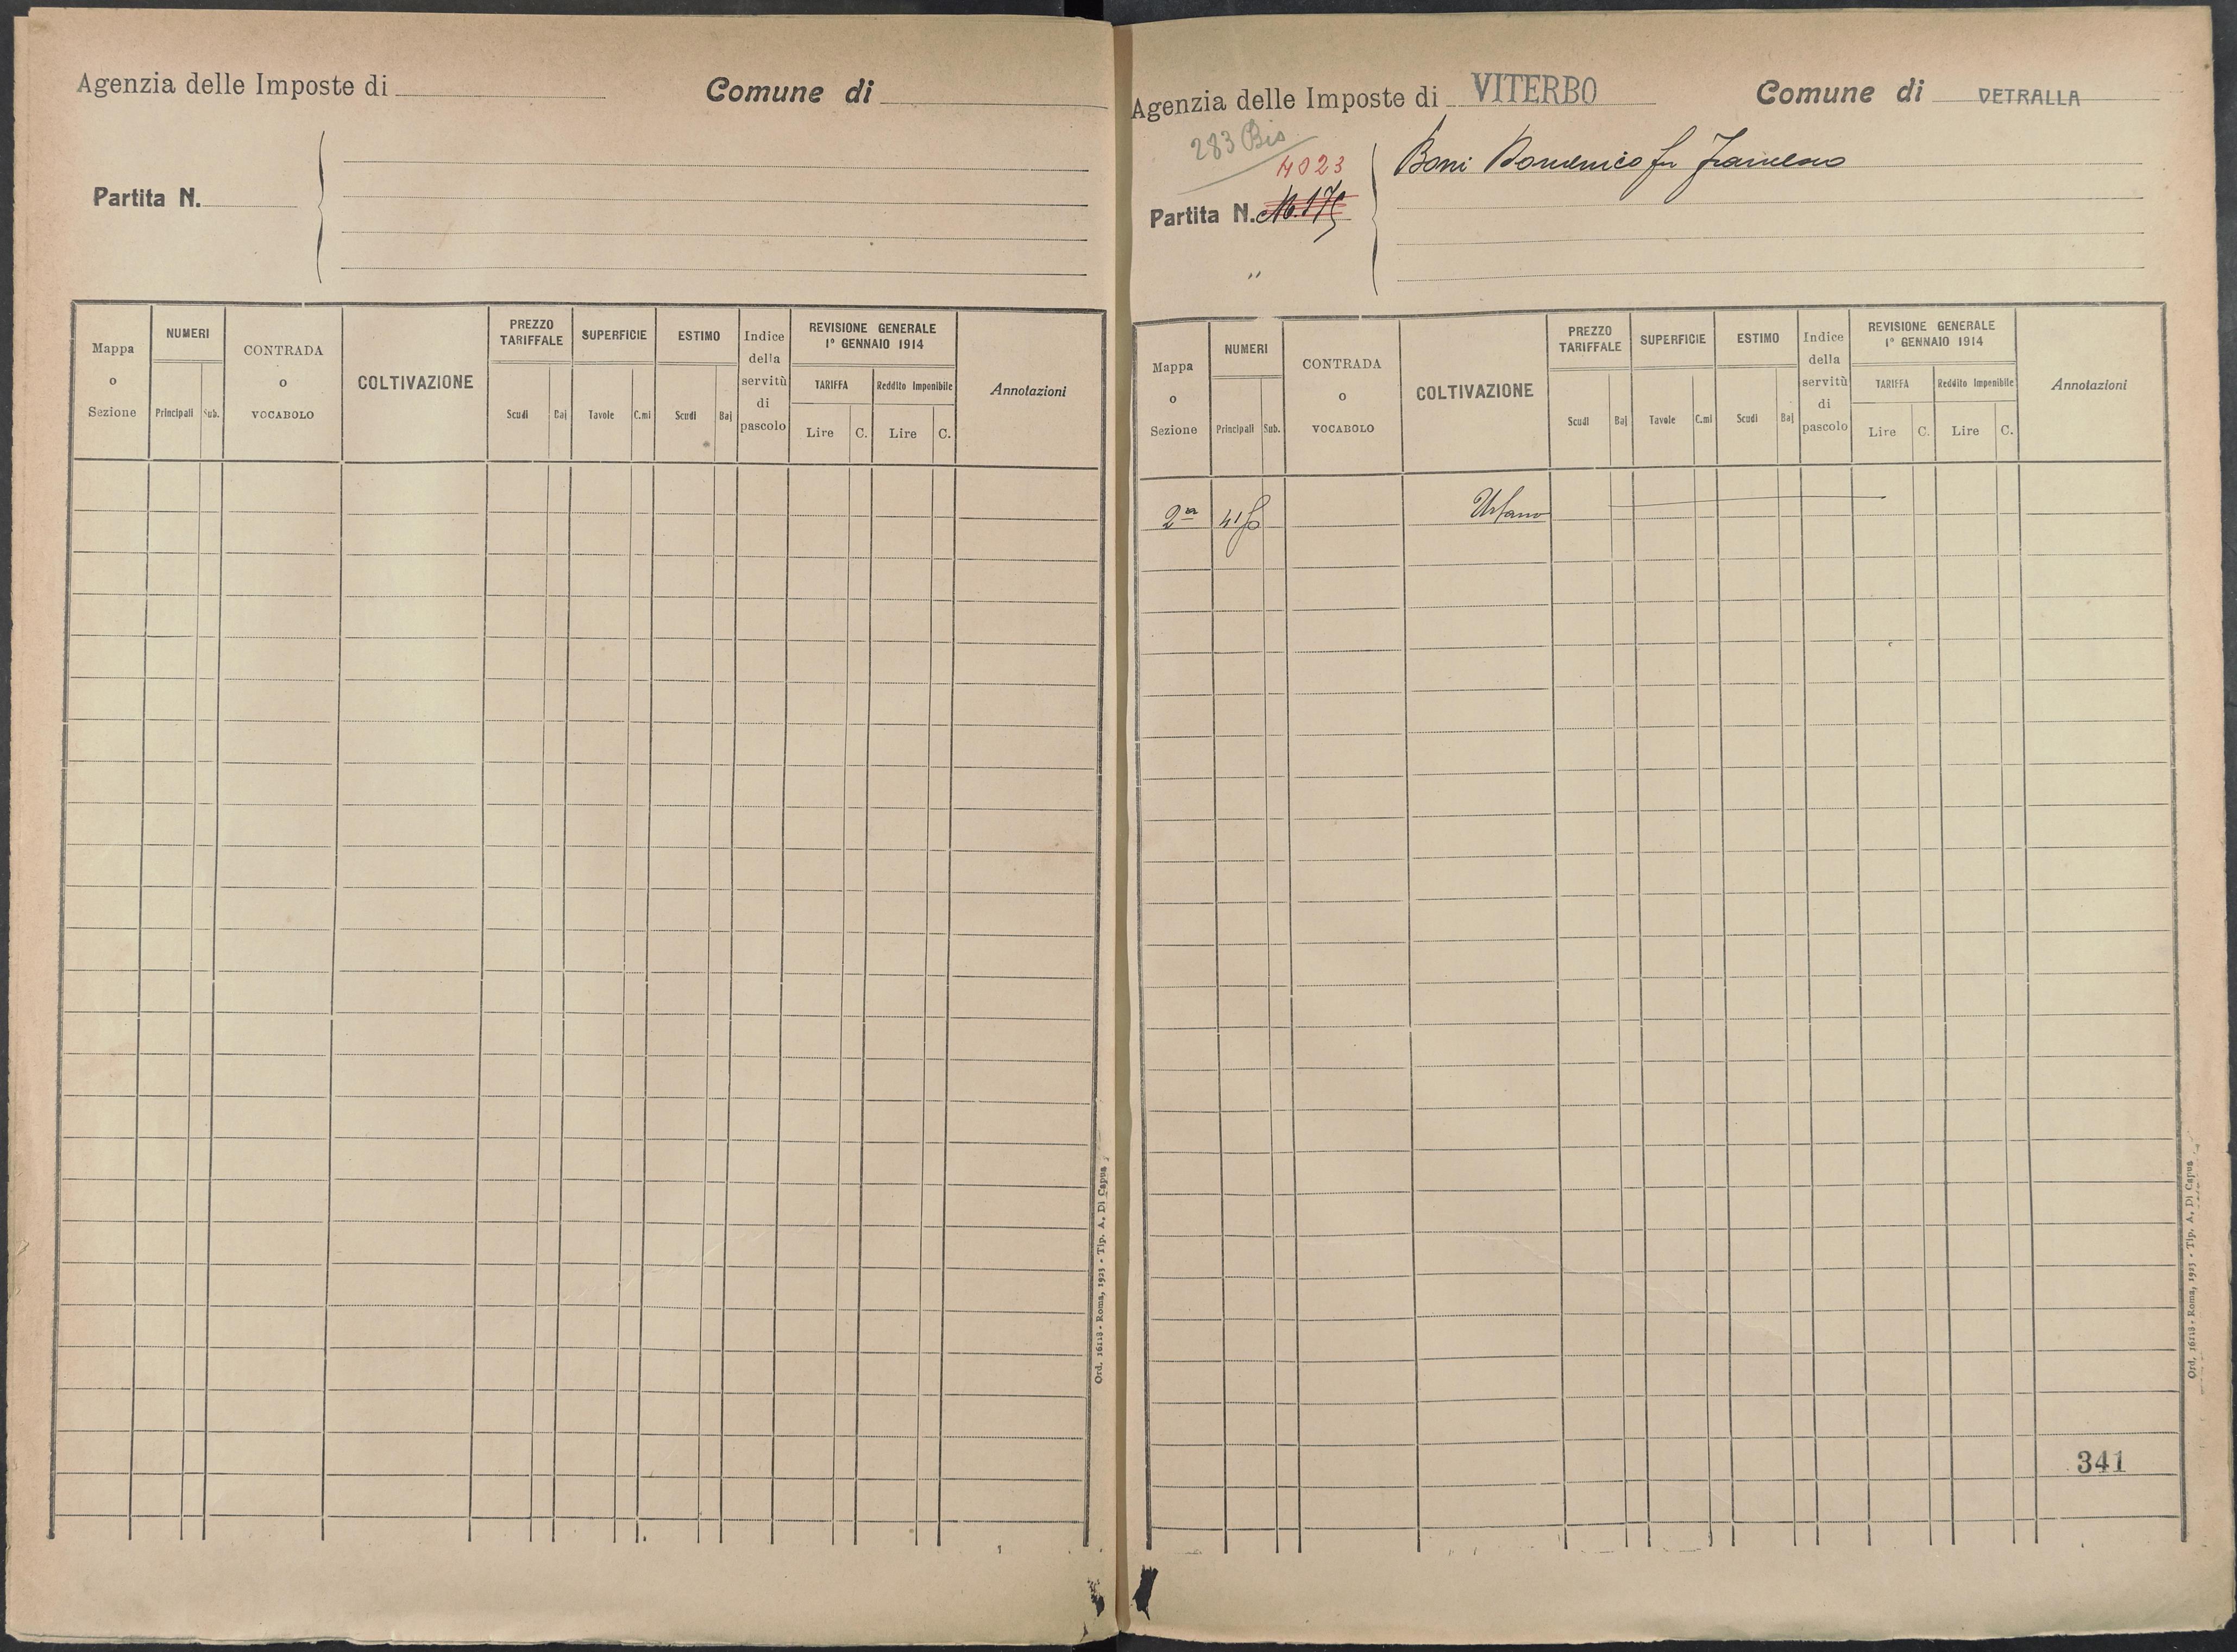 Agenzia delle Imposte di
Comune di
Partita N.
Mappa o Sezione
NUMERI
Principali Sub.
CONTRADA o VOCABOLO
COLTIVAZIONE
PREZZO TARIFFALE
Scudi Baj
SUPERFICIE
Tavole C.mi
ESTIMO
Scudi Baj
Indice della servitù di pascolo
REVISIONE GENERALE
1° GENNAIO 1914
TARIFFA
Lire C.
Reddito Imponibile
Lire C.
Annotazioni
Ord. 16118 - Roma, 1923 - Tip. A. Di Capua
Agenzia delle Imposte di VITERBO
Comune di VETRALLA
283 Bis
4023
Partita N.
"
Boni Domenico fu Francesco
Mappa o Sezione
NUMERI
Principali Sub.
CONTRADA o VOCABOLO
COLTIVAZIONE
PREZZO TARIFFALE
Scudi Baj
SUPERFICIE
Tavole C.mi
ESTIMO
Scudi Baj
Indice della servitù di pascolo
REVISIONE GENERALE
1° GENNAIO 1914
TARIFFA
Lire C.
Reddito Imponibile
Lire C.
Annotazioni
2ª Urbano
341
Ord. 16118 - Roma, 1923 - Tip. A. Di Capua